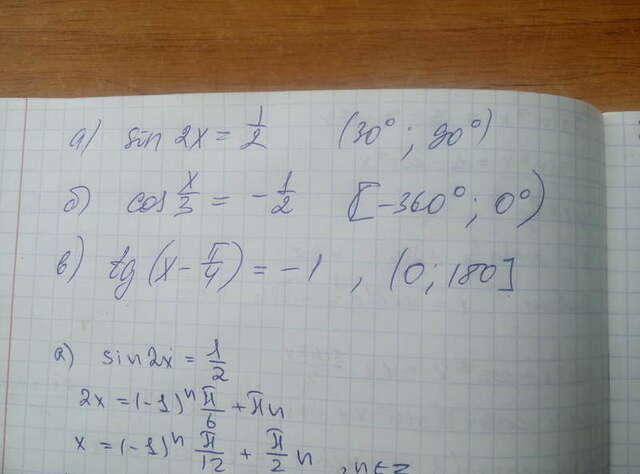 а) sin 2x = 1/2 (30°; 90°)
б) cos x/3 = - 1/2 [-360°; 0°)
в) tg (x - π/4) = -1 , (0; 180]
а) sin 2x = 1/2
2x = (-1)ⁿ π/6 + πn
x = (-1)ⁿ π/12 + π/2 n , n∈Z